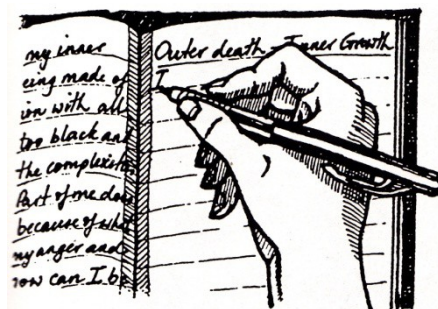 my inner
eing made of
ion with all
too black and
the complexit
Part of me doe
because of wha
my anger and
ow can I be
Outer death - Inner Growth
I